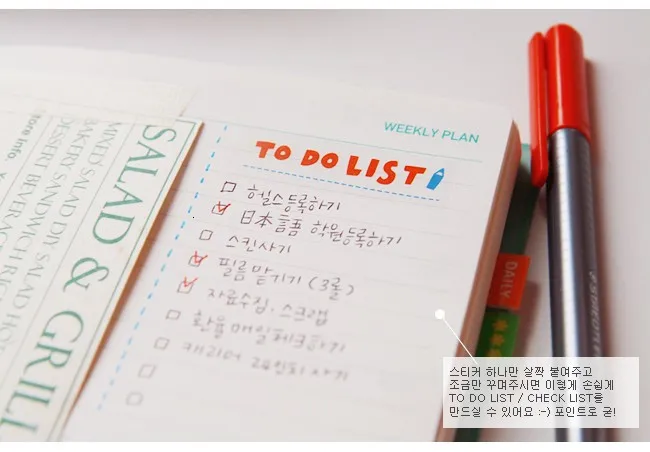 SALAD & GRILL
MIXED SALAD DIY SALAD HOT
BAKERY SANDWICH RIC
DESSERT BEVERAG
tore Info.
WEEKLY PLAN
TO DO LIST
헬스등록하기
日本語 학원등록하기
스킨사기
필름맡기기 (3롤)
자료수집·스크랩
환율매일체크하기
캐리어 사기
DAILY
STAEDTLER
스티커 하나만 살짝 붙여주고
조금만 꾸며주시면 이렇게 손쉽게
TO DO LIST / CHECK LIST를
만드실 수 있어요 :-) 포인트로 굳!